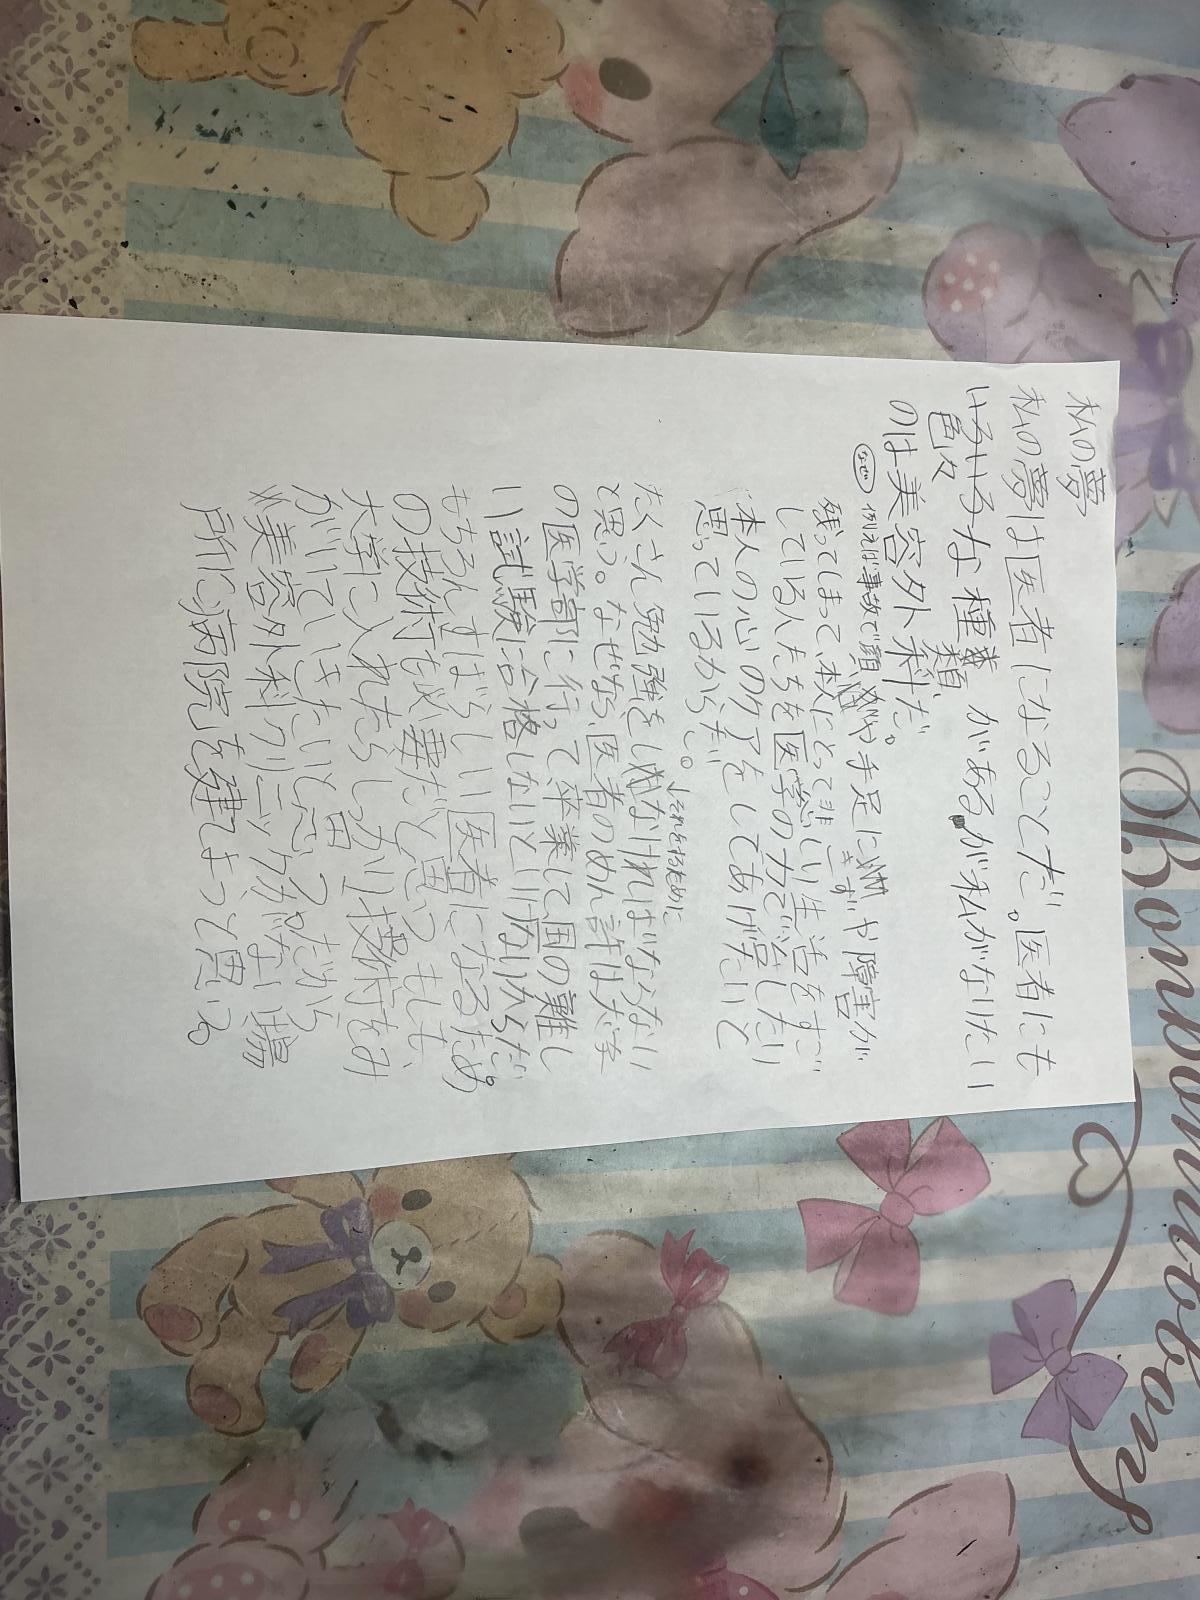 私の夢
私の夢は医者になることだ。医者にも
いろいろな種類があるが私がなりたい
色々
のは美容外科だ。
なぜ 例えば事故で顔や手足にきずや障害が
残ってしまって、本人にとって悲しい生活をすご
している人たちを医学の力で治したり
本人の心のケアをしてあげたいと
思っているからだ。
↓それをするために
たくさん勉強をしなければならない
と思う。なぜなら、医者のめん許は大学
の医学部に行って卒業して国の難し
い試験に合格しないといけないからだ。
もちろんすばらしい医者になるため
の技術も必要だと思う。もしも
大学に入れたらしっかり技術をみ
がいていきたいと思う。だから
美容外科クリニックがない場
所に病院を建てようと思う
Bonbonribbon